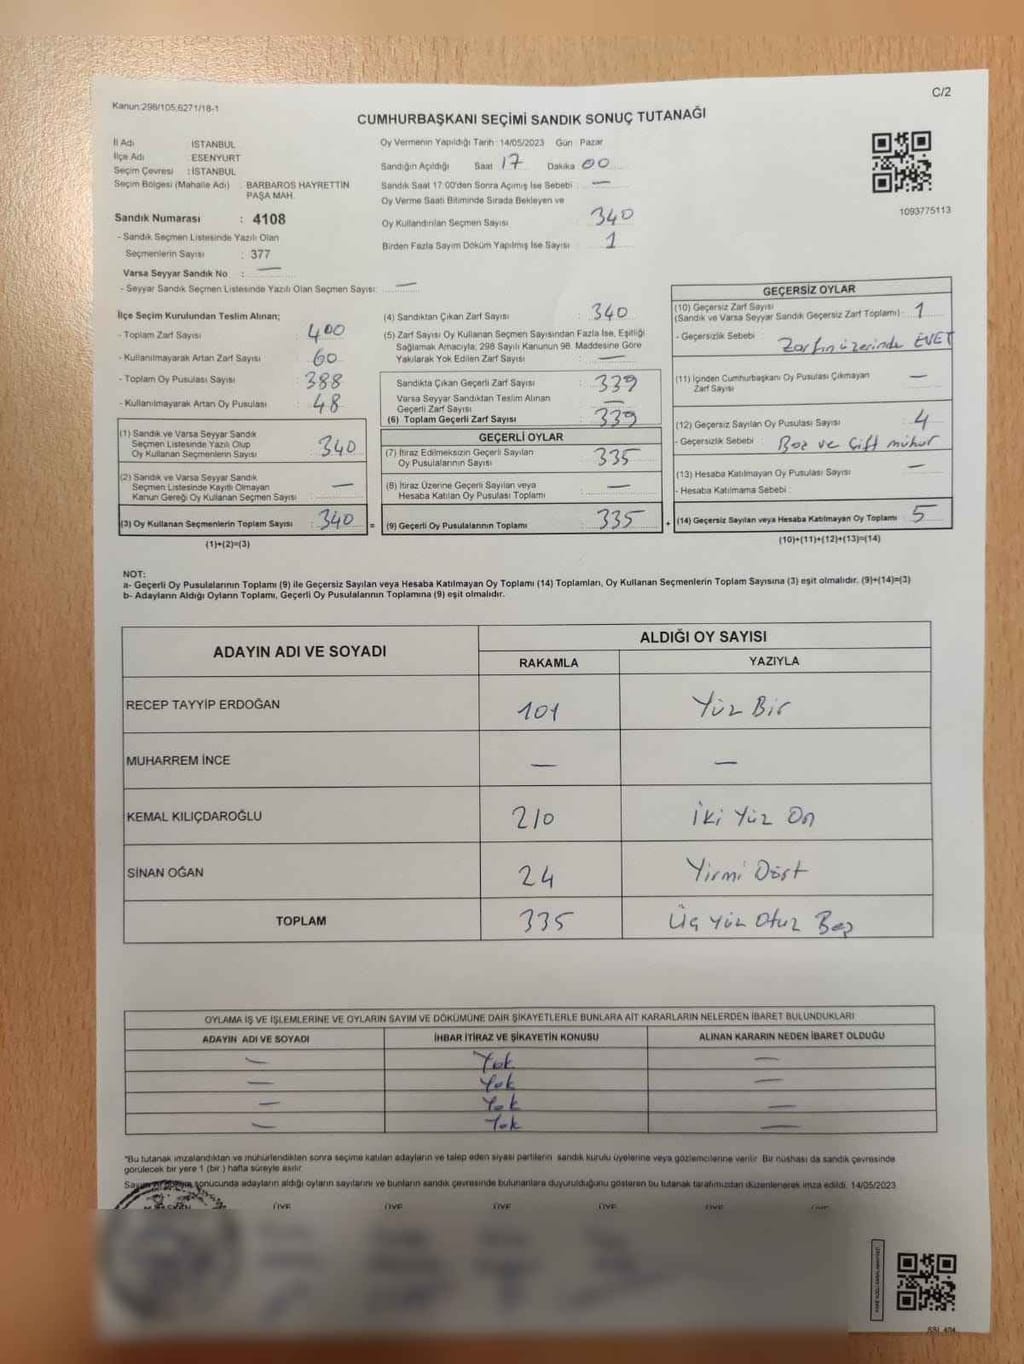 Kanun:298/105,6271/18-1
C/2
CUMHURBAŞKANI SEÇİMİ SANDIK SONUÇ TUTANAĞI
İl Adı İSTANBUL
İlçe Adı ESENYURT
Seçim Çevresi : İSTANBUL
Seçim Bölgesi (Mahalle Adı) : BARBAROS HAYRETTİN PAŞA MAH.
Sandık Numarası : 4108
- Sandık Seçmen Listesinde Yazılı Olan
Seçmenlerin Sayısı : 377
Varsa Seyyar Sandık No : —
- Seyyar Sandık Seçmen Listesinde Yazılı Olan Seçmen Sayısı: —
Oy Vermenin Yapıldığı Tarih : 14/05/2023 Gün Pazar
Sandığın Açıldığı Saat 17 Dakika 00
Sandık Saat 17:00'den Sonra Açımış İse Sebebi : —
Oy Verme Saati Bitiminde Sırada Bekleyen ve
Oy Kullandırılan Seçmen Sayısı : 340
Birden Fazla Sayım Döküm Yapılmış İse Sayısı : 1
1093775113
İlçe Seçim Kurulundan Teslim Alınan;
- Toplam Zarf Sayısı : 400
- Kullanılmayarak Artan Zarf Sayısı : 60
- Toplam Oy Pusulası Sayısı : 388
- Kullanılmayarak Artan Oy Pusulası : 48
(1) Sandık ve Varsa Seyyar Sandık
Seçmen Listesinde Yazılı Olup
Oy Kullanan Seçmenlerin Sayısı : 340
(2) Sandık ve Varsa Seyyar Sandık
Seçmen Listesinde Kayıtlı Olmayan
Kanun Gereği Oy Kullanan Seçmen Sayısı : —
(3) Oy Kullanan Seçmenlerin Toplam Sayısı : 340 =
(1)+(2)=(3)
(4) Sandıktan Çıkan Zarf Sayısı : 340
(5) Zarf Sayısı Oy Kullanan Seçmen Sayısından Fazla İse, Eşitliği
Sağlamak Amacıyla, 298 Sayılı Kanunun 98. Maddesine Göre
Yakılarak Yok Edilen Zarf Sayısı : —
Sandıkta Çıkan Geçerli Zarf Sayısı : 339
Varsa Seyyar Sandıktan Teslim Alınan
Geçerli Zarf Sayısı : —
(6) Toplam Geçerli Zarf Sayısı : 339
GEÇERLİ OYLAR
(7) İtiraz Edilmeksizin Geçerli Sayılan
Oy Pusulalarının Sayısı : 335
(8) İtiraz Üzerine Geçerli Sayılan veya
Hesaba Katılan Oy Pusulası Toplamı : —
(9) Geçerli Oy Pusulalarının Toplamı : 335 +
GEÇERSİZ OYLAR
(10) Geçersiz Zarf Sayısı
(Sandık ve Varsa Seyyar Sandık Geçersiz Zarf Toplamı) : 1
- Geçersizlik Sebebi : Zarfın üzerinde EVET
(11) İçinden Cumhurbaşkanı Oy Pusulası Çıkmayan
Zarf Sayısı : —
(12) Geçersiz Sayılan Oy Pusulası Sayısı : 4
- Geçersizlik Sebebi : Boş ve Çift mühür
(13) Hesaba Katılmayan Oy Pusulası Sayısı : —
- Hesaba Katılmama Sebebi :
(14) Geçersiz Sayılan veya Hesaba Katılmayan Oy Toplamı : 5
(10)+(11)+(12)+(13)=(14)
NOT:
a- Geçerli Oy Pusulalarının Toplamı (9) ile Geçersiz Sayılan veya Hesaba Katılmayan Oy Toplamı (14) Toplamları, Oy Kullanan Seçmenlerin Toplam Sayısına (3) eşit olmalıdır. (9)+(14)=(3)
b- Adayların Aldığı Oyların Toplamı, Geçerli Oy Pusulalarının Toplamına (9) eşit olmalıdır.
ADAYIN ADI VE SOYADI ALDIĞI OY SAYISI
RAKAMLA YAZIYLA
RECEP TAYYİP ERDOĞAN 101 Yüz Bir
MUHARREM İNCE — —
KEMAL KILIÇDAROĞLU 210 İki Yüz On
SİNAN OĞAN 24 Yirmi Dört
TOPLAM 335 Üç Yüz Otuz Beş
OYLAMA İŞ VE İŞLEMLERİNE VE OYLARIN SAYIM VE DÖKÜMÜNE DAİR ŞİKAYETLERLE BUNLARA AİT KARARLARIN NELERDEN İBARET BULUNDUKLARI
ADAYIN ADI VE SOYADI İHBAR İTİRAZ VE ŞİKAYETİN KONUSU ALINAN KARARIN NEDEN İBARET OLDUĞU
— Yok —
— Yok —
— Yok —
— Yok —
*Bu tutanak imzalandıktan ve mühürlendikten sonra seçime katılan adayların ve talep eden siyasi partilerin sandık kurulu üyelerine veya gözlemcilerine verilir. Bir nüshası da sandık çevresinde
görülecek bir yere 1 (bir) hafta süreyle asılır.
sonucunda adayların aldığı oyların sayılarını ve bunların sandık çevresinde bulunanlara duyurulduğunu gösteren bu tutanak tarafımızdan düzenlenerek imza edildi. 14/05/2023
ÜYE ÜYE ÜYE ÜYE ÜYE